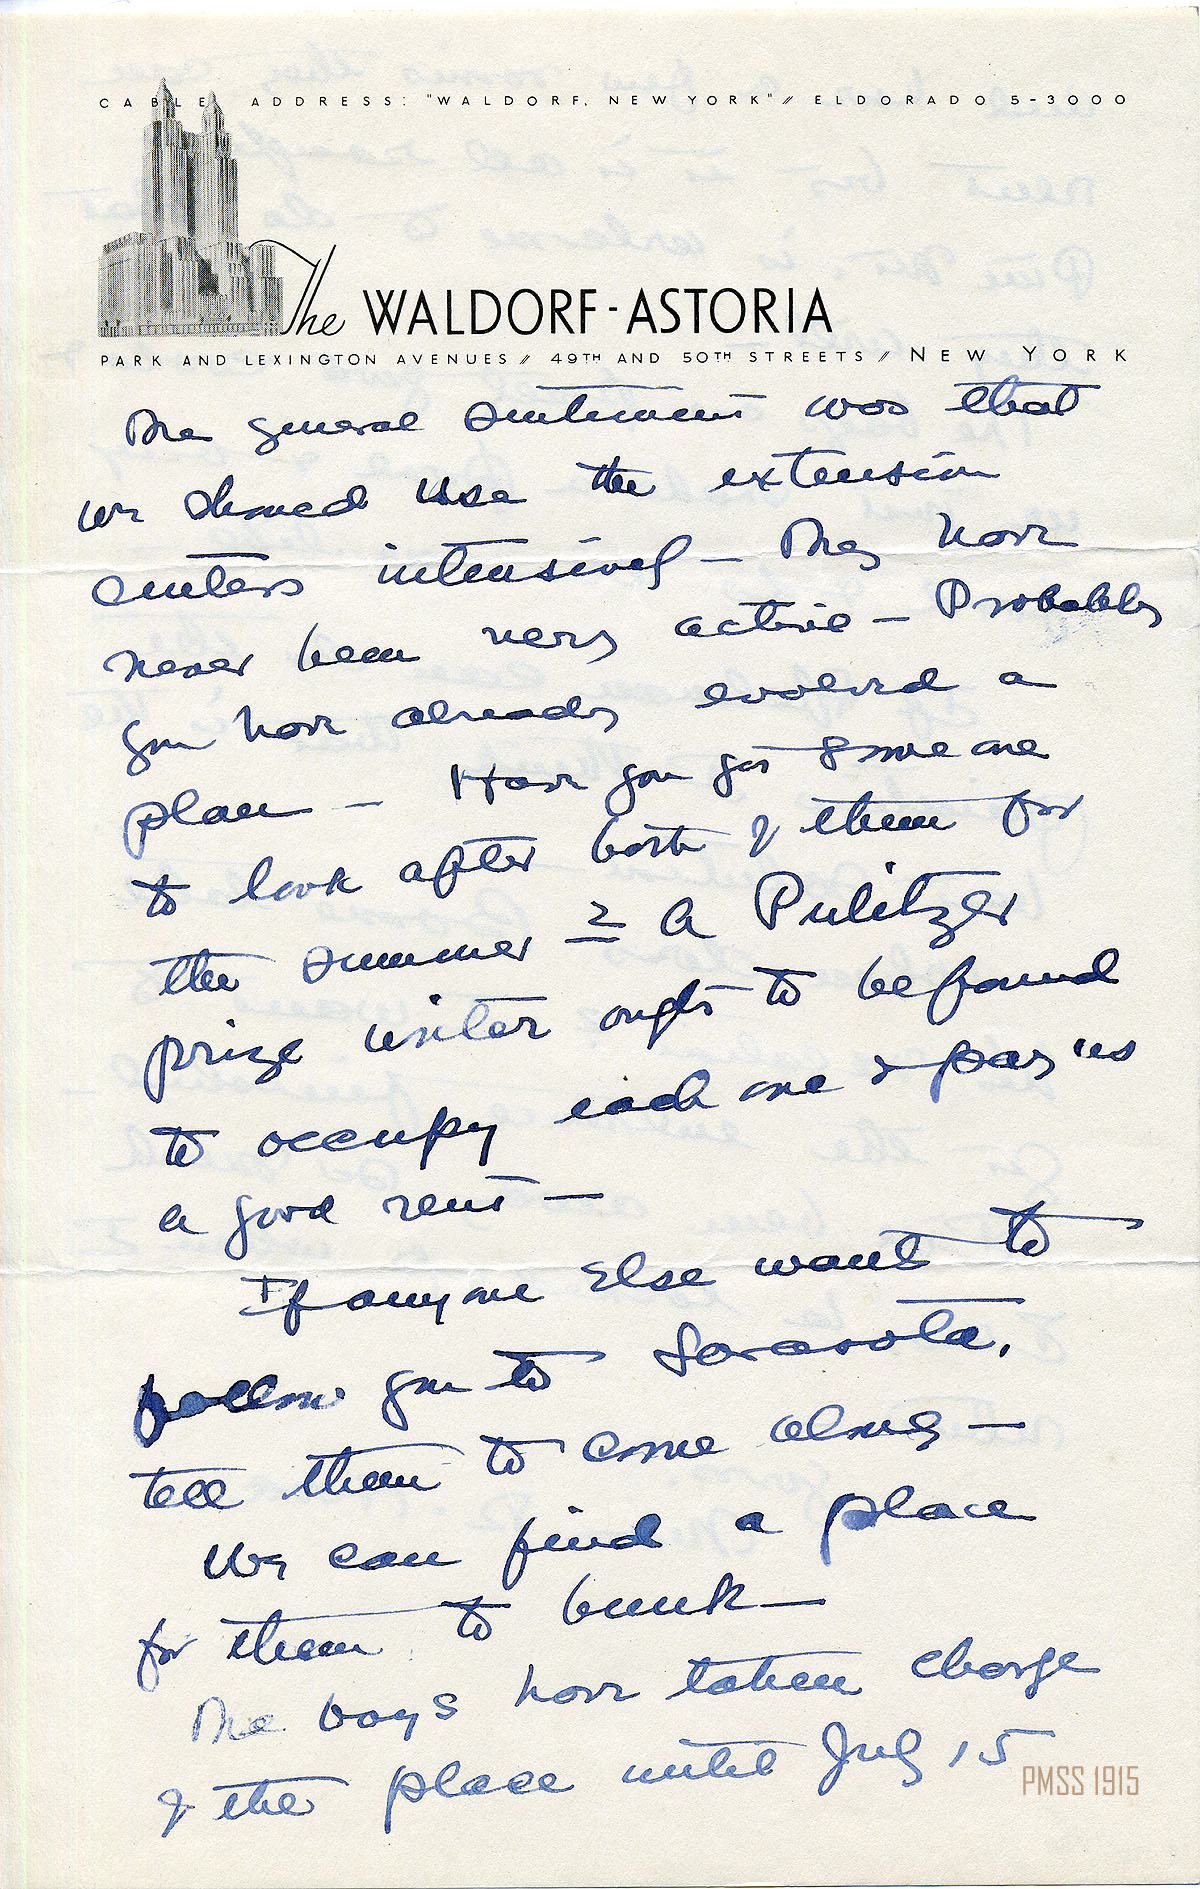 CABLE ADDRESS: "WALDORF, NEW YORK" // ELDORADO 5-3000
The WALDORF-ASTORIA
PARK AND LEXINGTON AVENUES // 49TH AND 50TH STREETS // NEW YORK
The general sentiment was that
we should use the extension
centers intensively — They have
never been very active — Probably
you have already evolved a
plan — Have you got some one
to look after both of them for
the summer ? A Pulitzer
prize writer ought to be found
to occupy each one & pay us
a good rent —
If anyone else want to
follow you to Sarasota,
tell them to come along —
We can find a place
for them to bunk —
The boys have taken charge
of the place until July 15
PMSS 1915